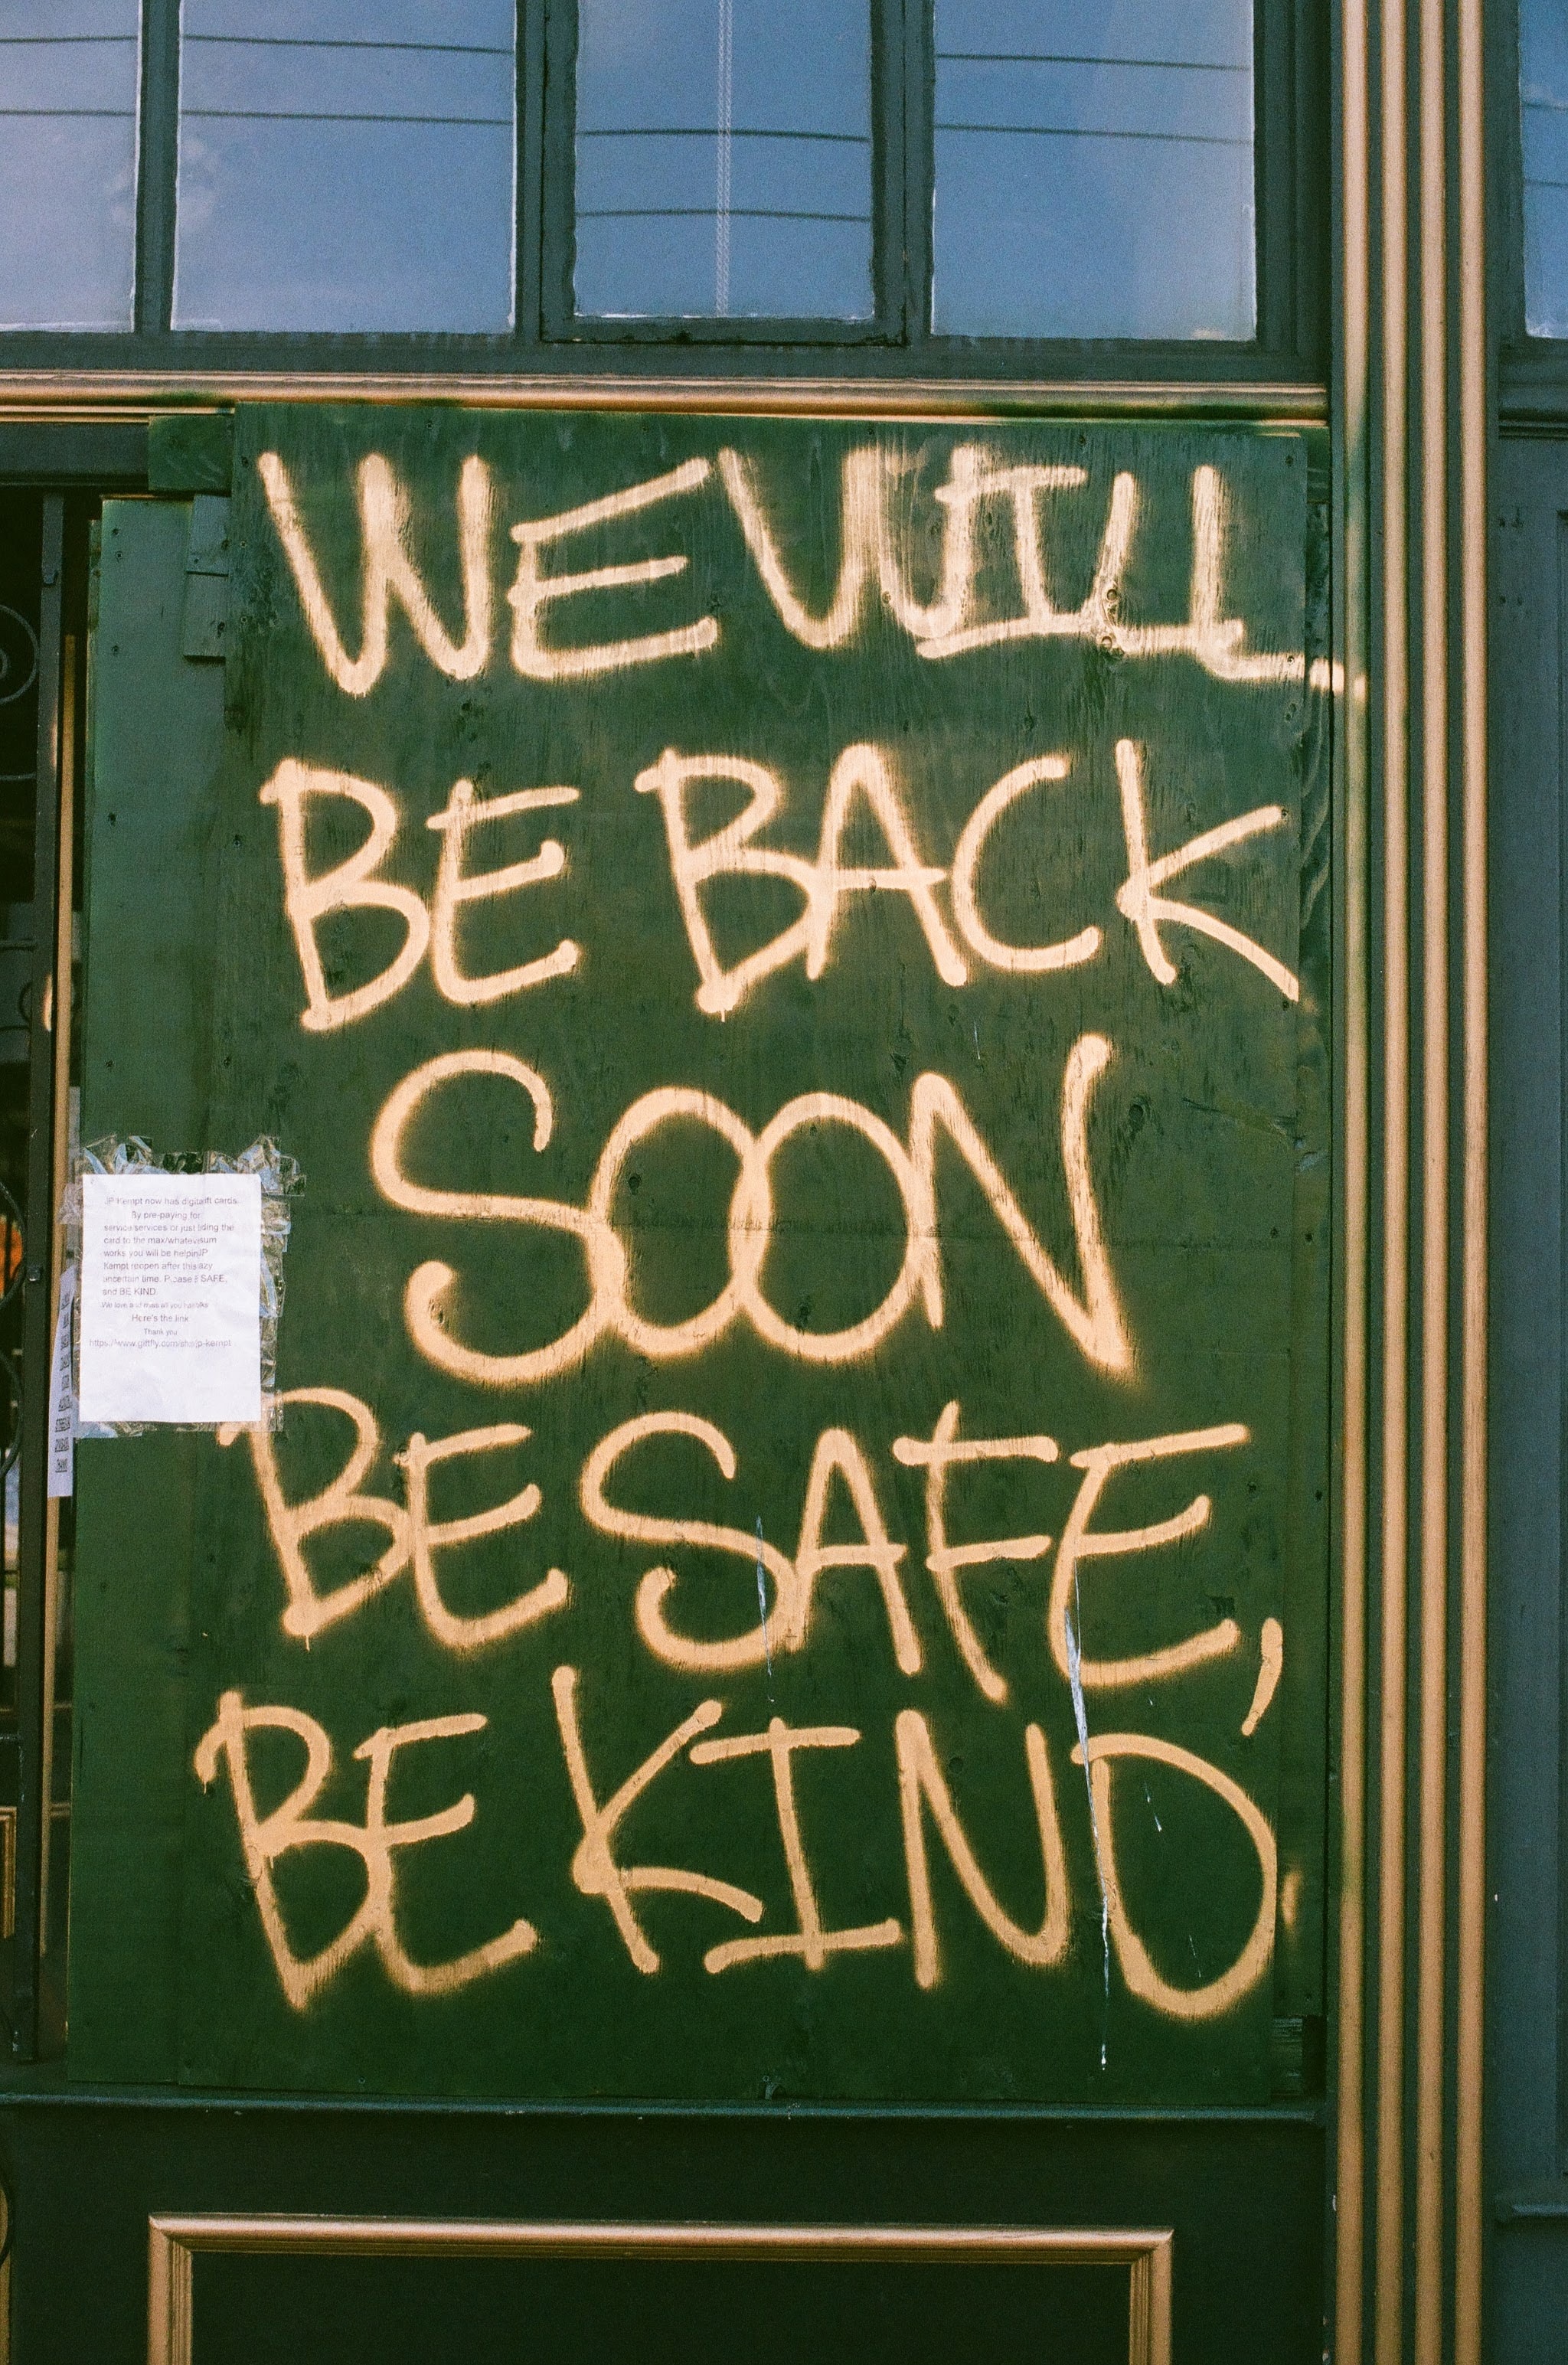 WE WILL
BE BACK
SOON
BE SAFE,
BE KIND
JP Kempt now has digital gift cards.
By pre-paying for
service/services or just
card to the max/whatever sum
works you will be helping JP
Kempt reopen after this
uncertain time. Please SAFE,
and BE KIND
We love and miss all you
Here's the link
Thank you